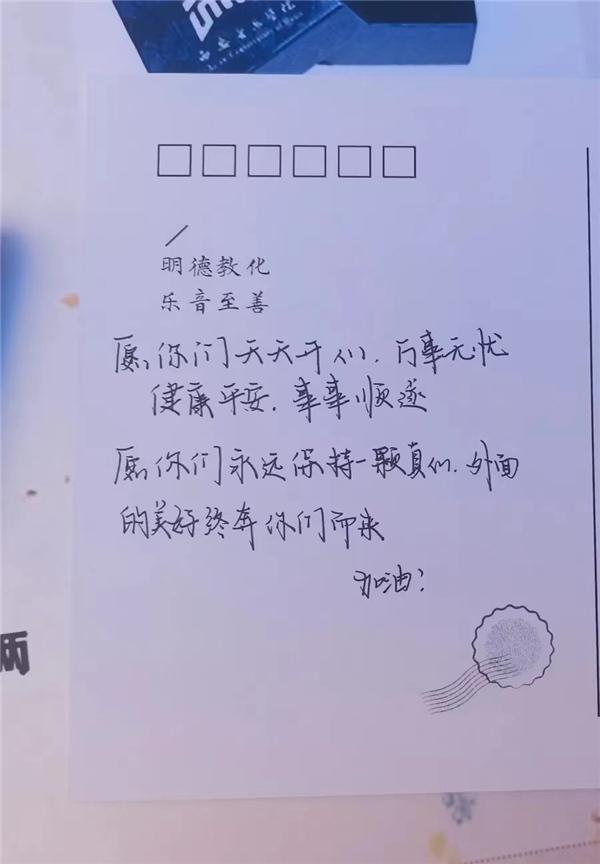 明德教化
乐音至善
愿你们天天开心,万事无忧
健康平安,事事顺遂
愿你们永远保持一颗真心,外面
的美好终奔你们而来
加油!